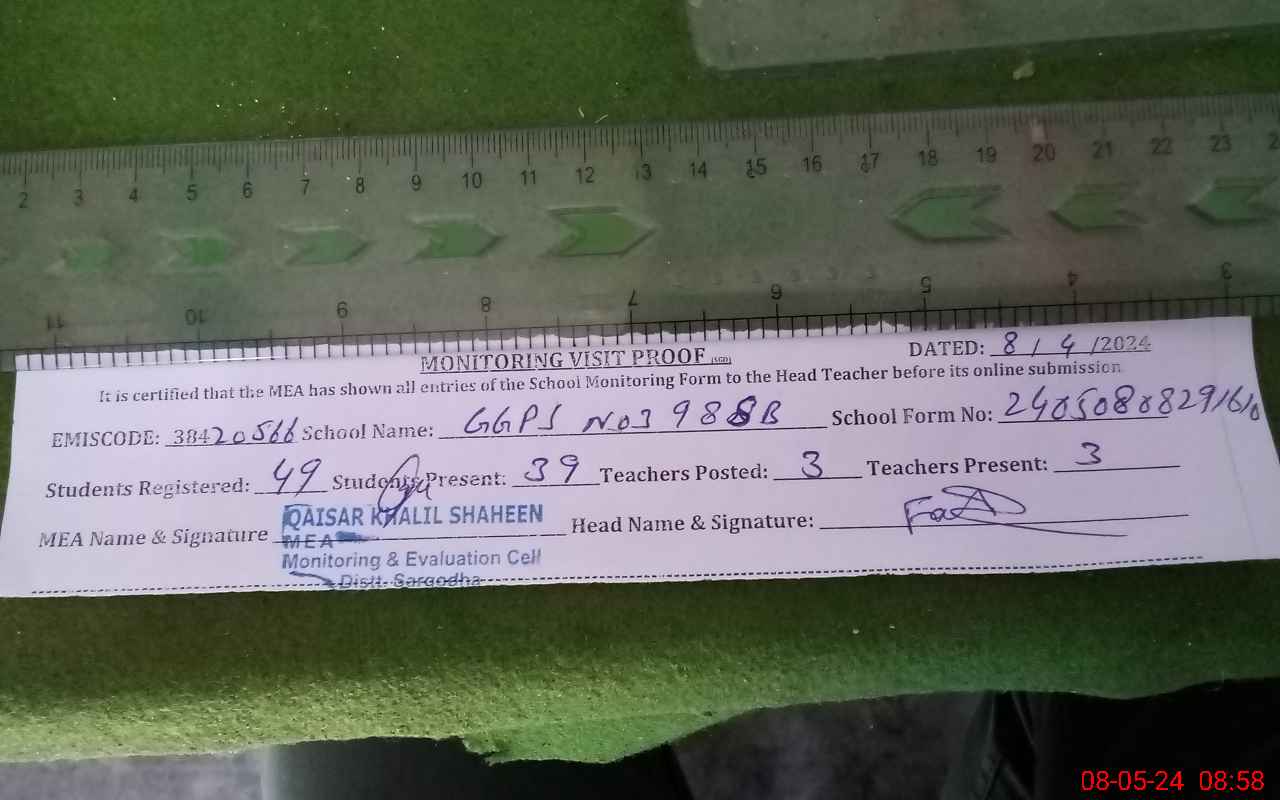 2 3 4 5 6 7 8 9 10 11 12 13 14 15 16 17 18 19 20 21 22 23
11 10 9 8 7 6 5 4 3
MONITORING VISIT PROOF (SGD)
DATED: 8 / 4 /2024
It is certified that the MEA has shown all entries of the School Monitoring Form to the Head Teacher before its online submission
EMISCODE: 38420566 School Name: GGPS No3 98 B School Form No:
Students Registered: 49 Students Present: 39 Teachers Posted: 3 Teachers Present: 3
MEA Name & Signature QAISAR KHALIL SHAHEEN Head Name & Signature:
MEA
Monitoring & Evaluation Cell
Distt. Sargodha
08-05-24 08:58